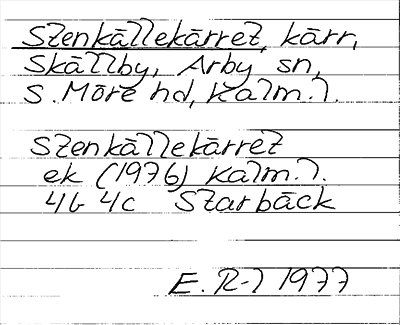 Stenkällekärret, kärr,
Skällby, Arby sn,
S. Möre hd, Kalm. l.
Stenkällekärret
ek (1976) Kalm. l.
4G 4c Starbäck
E. R-l 1977